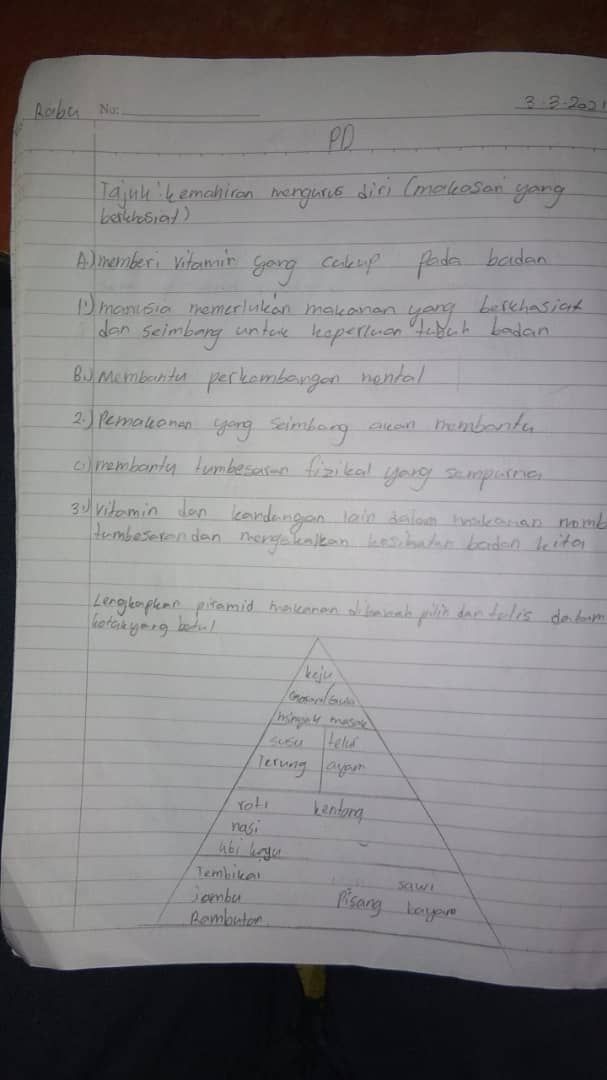 Rabu No: 3-3-2021
PD
Tajuk: kemahiran mengurus diri (makasan yang
berkhasiat)
A) memberi vitamin yang cakup pada badan
1) manusia memerlukan makanan yang berkhasiat
dan seimbang untuk keperluan tubuh badan
B.) Membantu perkembangan mental
2.) Pemakanan yang seimbang akan membantu
c) membantu tumbesaran fizikal yang sempurna
3.) vitamin dan kandungan lain dalam makanan memb
tumbesaran dan mengekalkan kesihatan badan kita
Lengkapkan piramid makanan dibawah pilih dan tulis dalam
kotak yang betul
keju
Garam/Gula
minyak masak
susu telur
Terung ayam
roti kentang
nasi
ubi kayu
Tembikai
jambu sawi
Pisang bayam
Rambutan